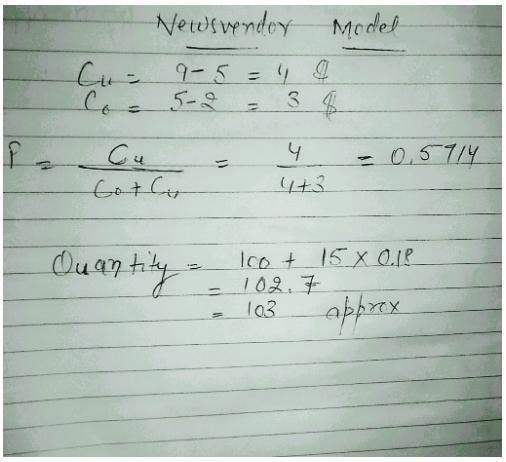 Newsvendor Model
Cu = 9-5 = 4 $
Co = 5-2 = 3 $
P = Cu / Co + Cu = 4 / 4+3 = 0.5714
Quantity = 100 + 15 x 0.18
= 102.7
= 103 approx